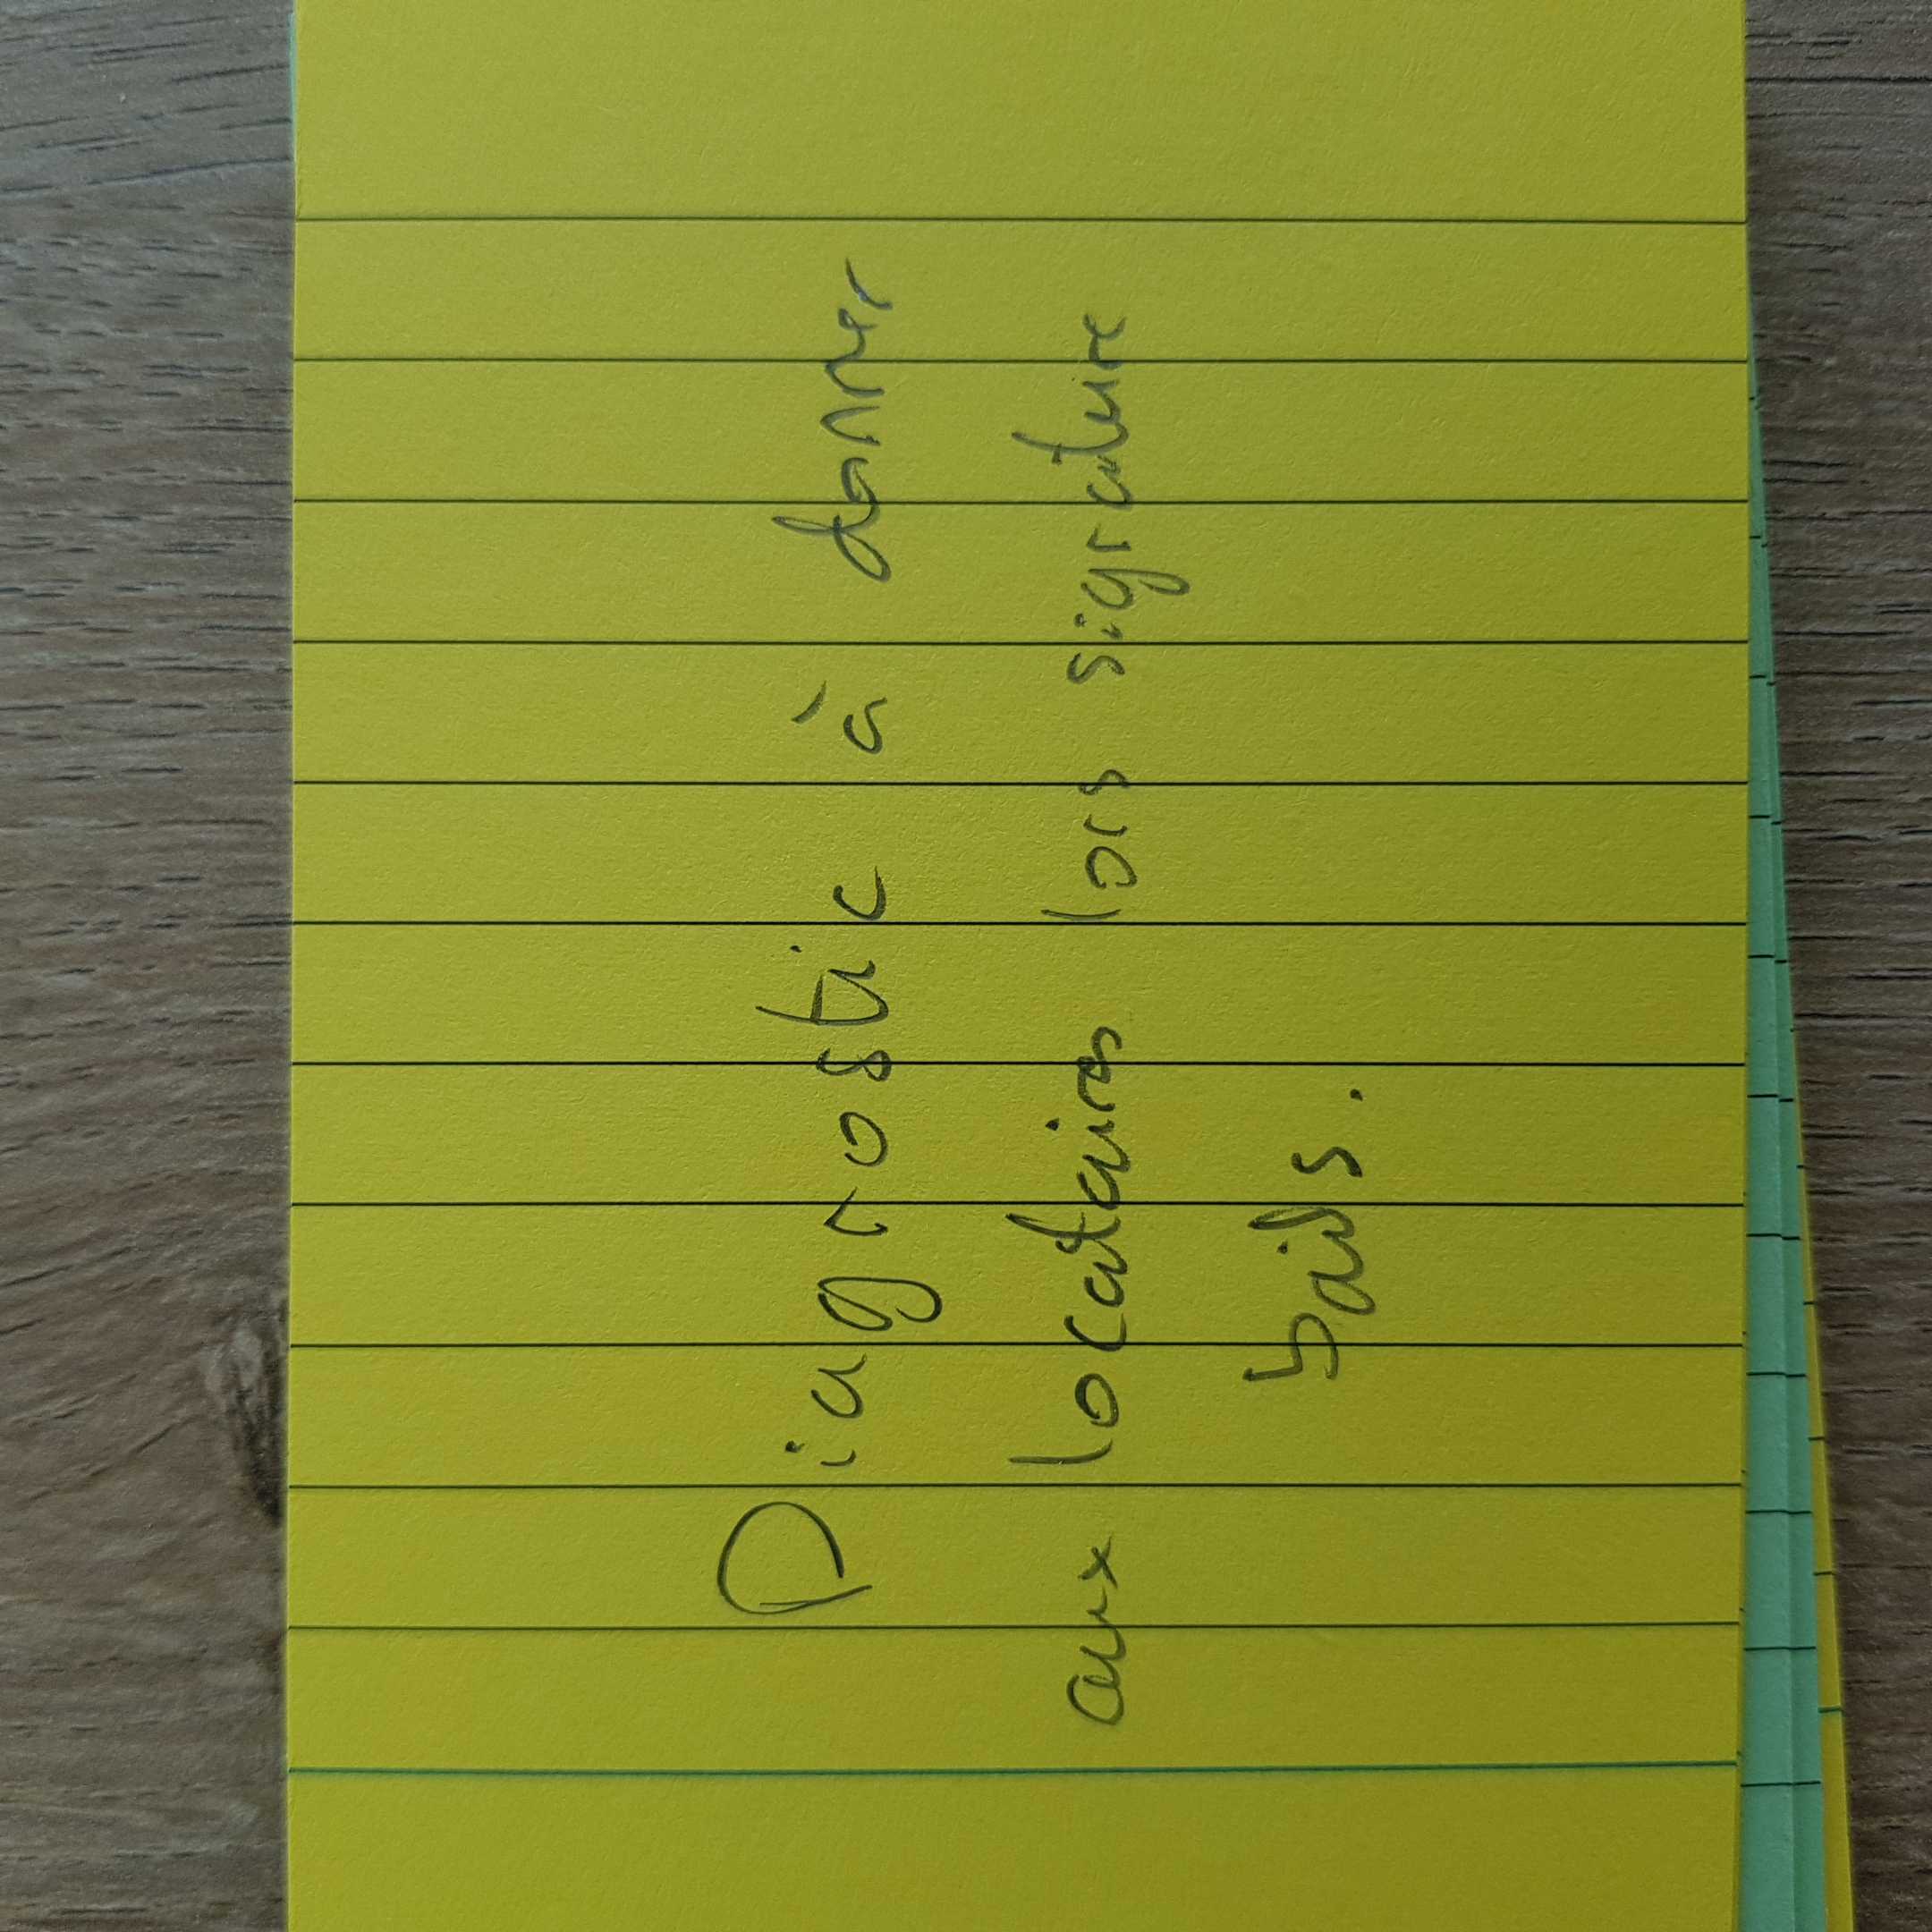 Diagnostic à donner
aux locataires lors signature
bails.